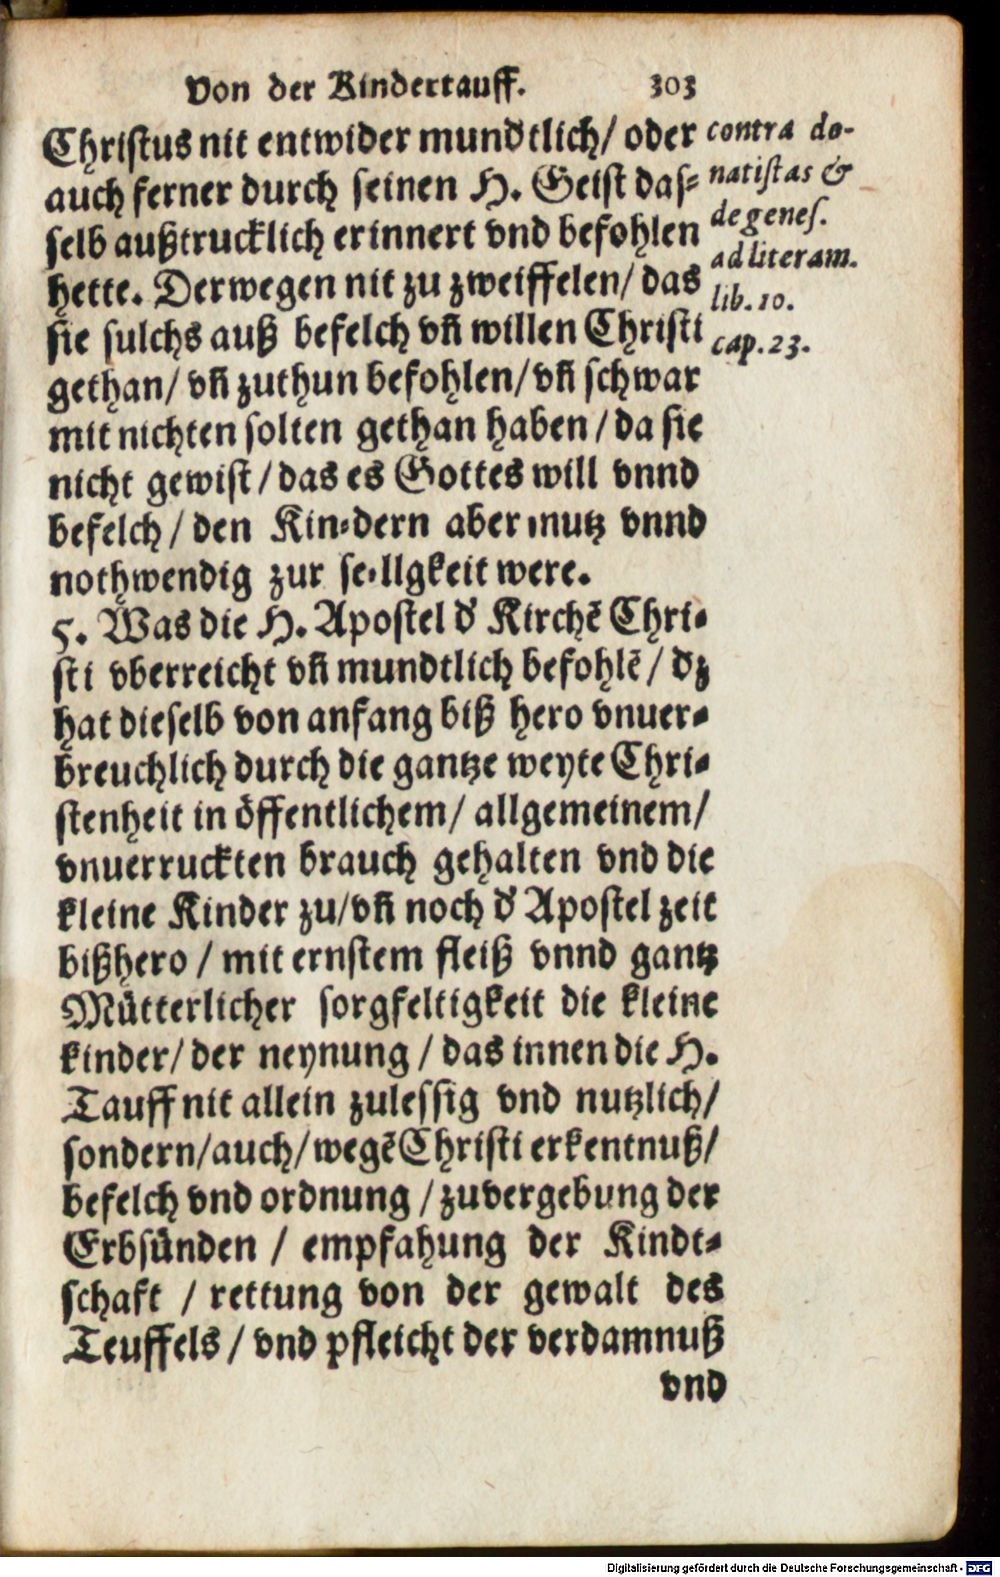 Von der Kindertauff. 303
Christus nit entwider mundtlich/ oder
auch ferner durch seinen H. Geist das⸗
selb außtrucklich erinnert vnd befohlen
hette. Derwegen nit zu zweiffelen/ das
sie sulchs auß befelch vñ willen Christi
gethan/ vñ zuthun befohlen/ vñ schwar
mit nichten solten gethan haben / da sie
nicht gewist / das es Gottes will vnnd
befelch / den Kin⸗dern aber nutz vnnd
nothwendig zur seligkeit were.
5. Was die H. Apostel d' Kirchẽ Chri⸗
sti vberreicht vñ mundtlich befohlẽ / dz
hat dieselb von anfang biß hero vnuer⸗
breuchlich durch die gantze weyte Chri⸗
stenheit in öffentlichem/ allgemeinem/
vnuerruckten brauch gehalten vnd die
kleine Kinder zu/ vñ noch d' Apostel zeit
bißhero / mit ernstem fleiß vnnd gantz
Mütterlicher sorgfeltigkeit die kleine
kinder/ der neynung / das innen die H.
Tauff nit allein zulessig vnd nutzlich/
sondern/ auch/ wegẽ Christi erkentnuß/
befelch vnd ordnung / zu vergebung der
Erbsünden / empfahung der Kindt⸗
schaft / rettung von der gewalt des
Teuffels / vnd pfleicht der verdamnuß
vnd
contra do-
natistas &
de genes.
ad literam.
lib. 10.
cap. 23.
Digitalisierung gefördert durch die Deutsche Forschungsgemeinschaft - DFG